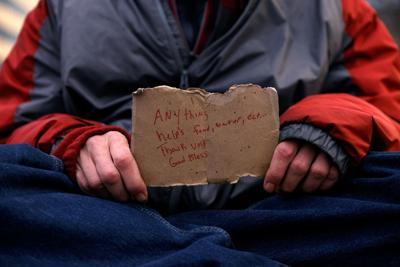 ANything
help's food, money, ect...
Thank you
God Bless